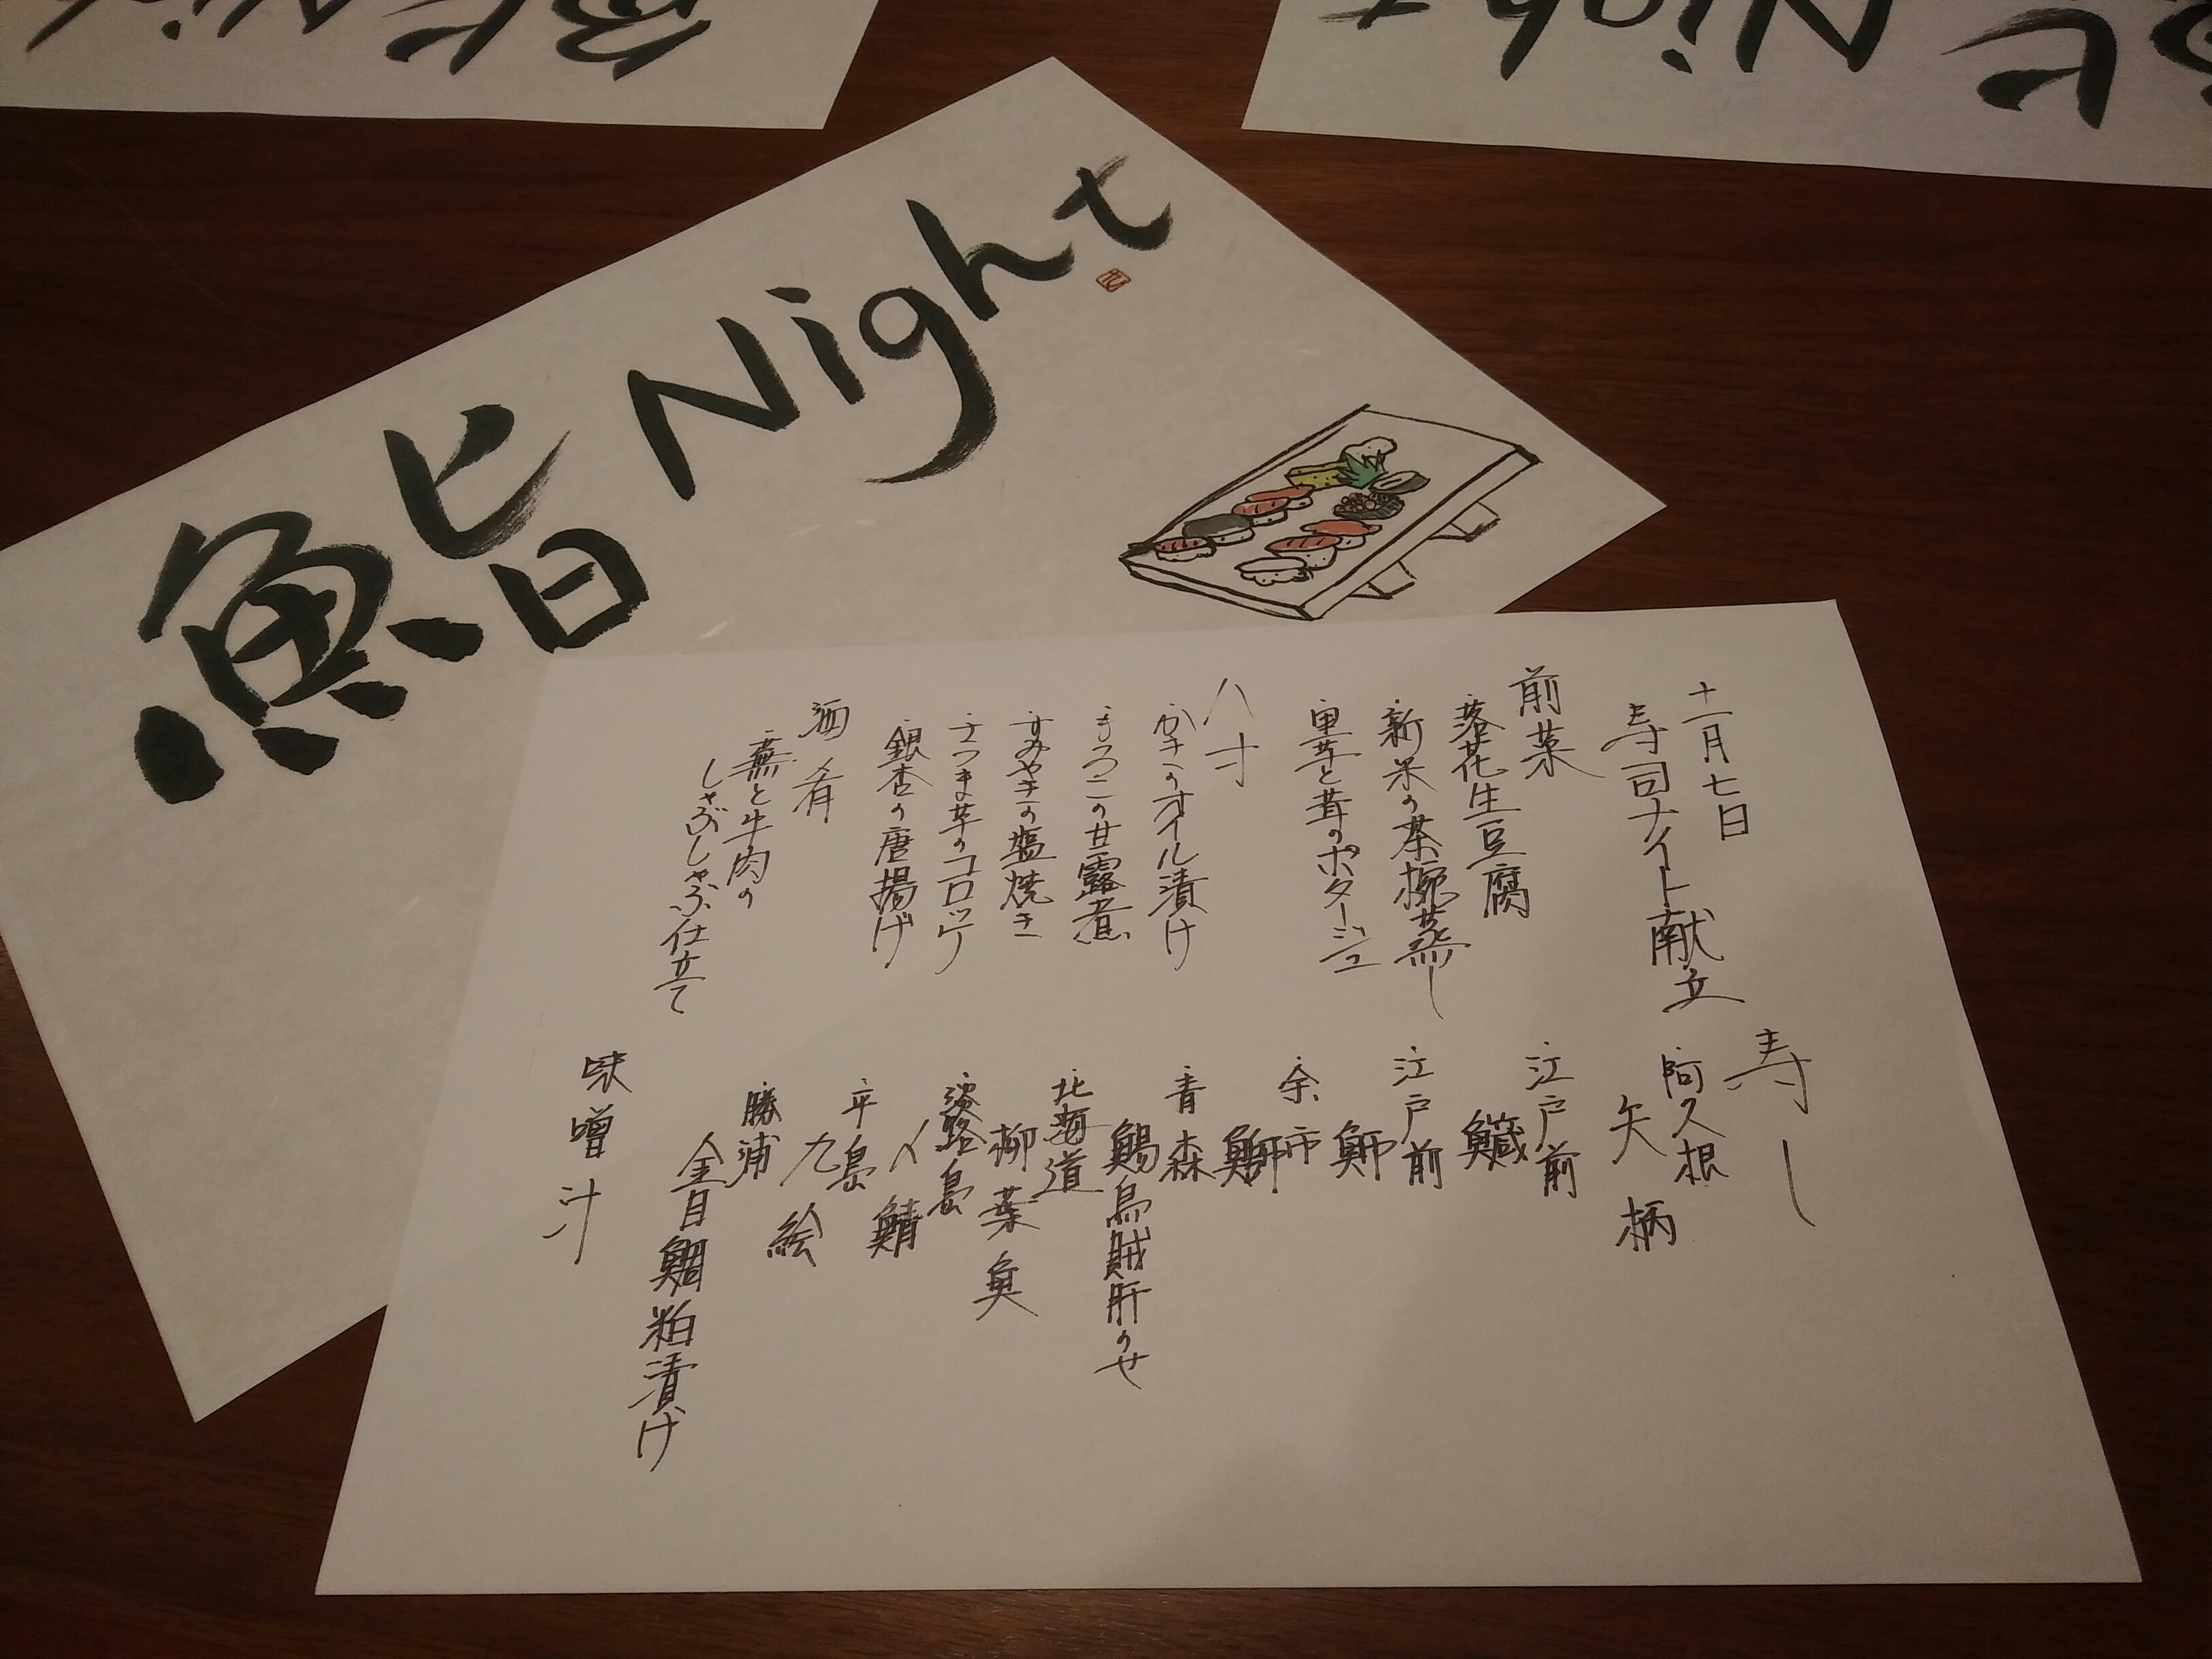 鮨 Night
十一月七日
寿司ナイト献立
前菜
落花生豆腐
新米の茶椀蒸し
里芋と茸のポタージュ
八寸
かきのオイル漬け
もろこの甘露煮
すみやきの塩焼き
さつま芋のコロッケ
銀杏の唐揚げ
酒肴
蕪と牛肉の
しゃぶしゃぶ仕立て
寿し
阿久根
矢柄
江戸前
鱵
江戸前
魳
余市
青森
鯣烏賊肝のせ
北海道
柳葉魚
淡路島
〆鯖
平島
九絵
勝浦
金目鯛粕漬け
味噌汁